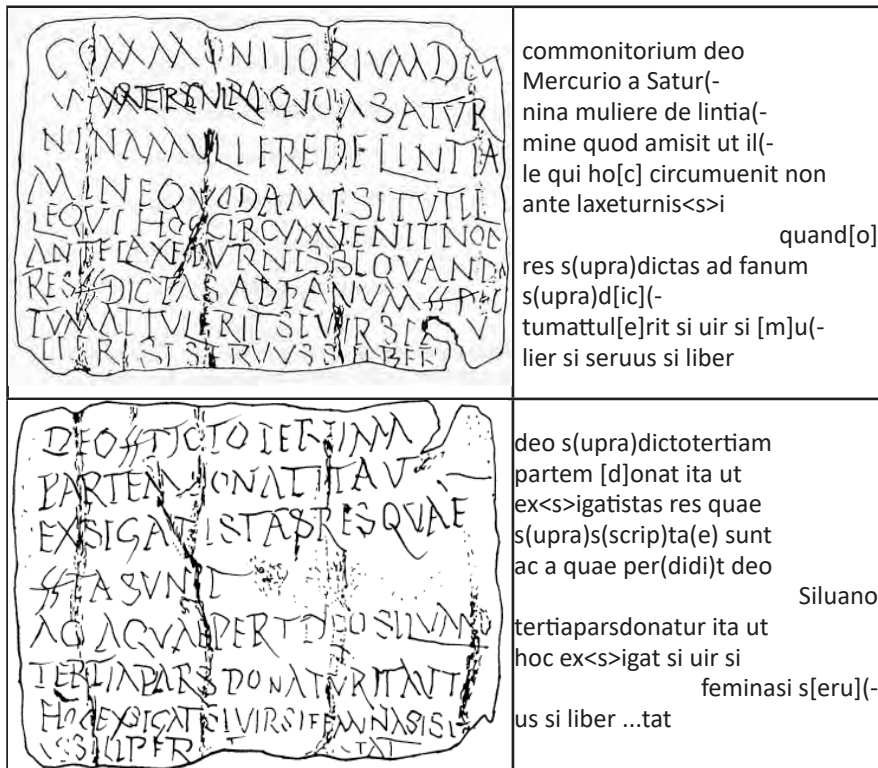 COMMONITORIVM D
SATVR
NINA MVLIERE DE LINTIA
MINE QVOD AMISIT VT IL
LE QVI HOC CIRCVMVENIT NON
ANTE LAXETVR NISSI QVAND
RES SS DICTAS AD FANVM SS
TVM ATTVLERIT SI VIR SI V
LIER SI SERVVS SI LIBER
commonitorium deo
Mercurio a Satur(-
nina muliere de lintia(-
mine quod amisit ut il(-
le qui ho[c] circumuenit non
ante laxeturnis<s>i
quand[o]
res s(upra)dictas ad fanum
s(upra)d[ic](-
tumattul[e]rit si uir si [m]u(-
lier si seruus si liber
DEO SS DICTO TERTIAM
PARTEM DONAT ITA VT
EXSIGAT ISTAS RES QVAE
SS TA SVNT
AC A QVAE PER T DEO SILVANO
TERTIA PARS DONATVR ITA VT
HOC EXSIGAT SI VIR SI FEMINA SI S
VS SI LIBER TAT
deo s(upra)dictotertiam
partem [d]onat ita ut
ex<s>igatistas res quae
s(upra)s(scrip)ta(e) sunt
ac a quae per(didi)t deo
Siluano
tertiaparsdonatur ita ut
hoc ex<s>igat si uir si
feminasi s[eru](-
us si liber ...tat